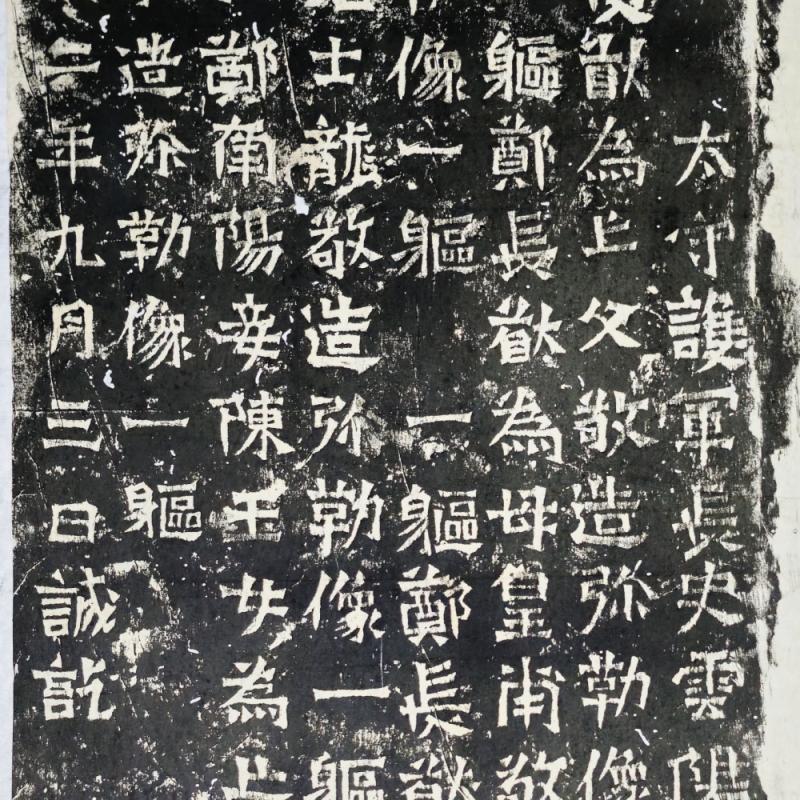 太守護軍長史雲陽
猷為亡父敬造弥勒像
軀鄭長猷為母皇甫敬
像一軀 一軀鄭長猷
士龍敬造弥勒像一軀
鄭南陽妾陳玉女為亡
造弥勒像一軀
二年九月三日誠訖